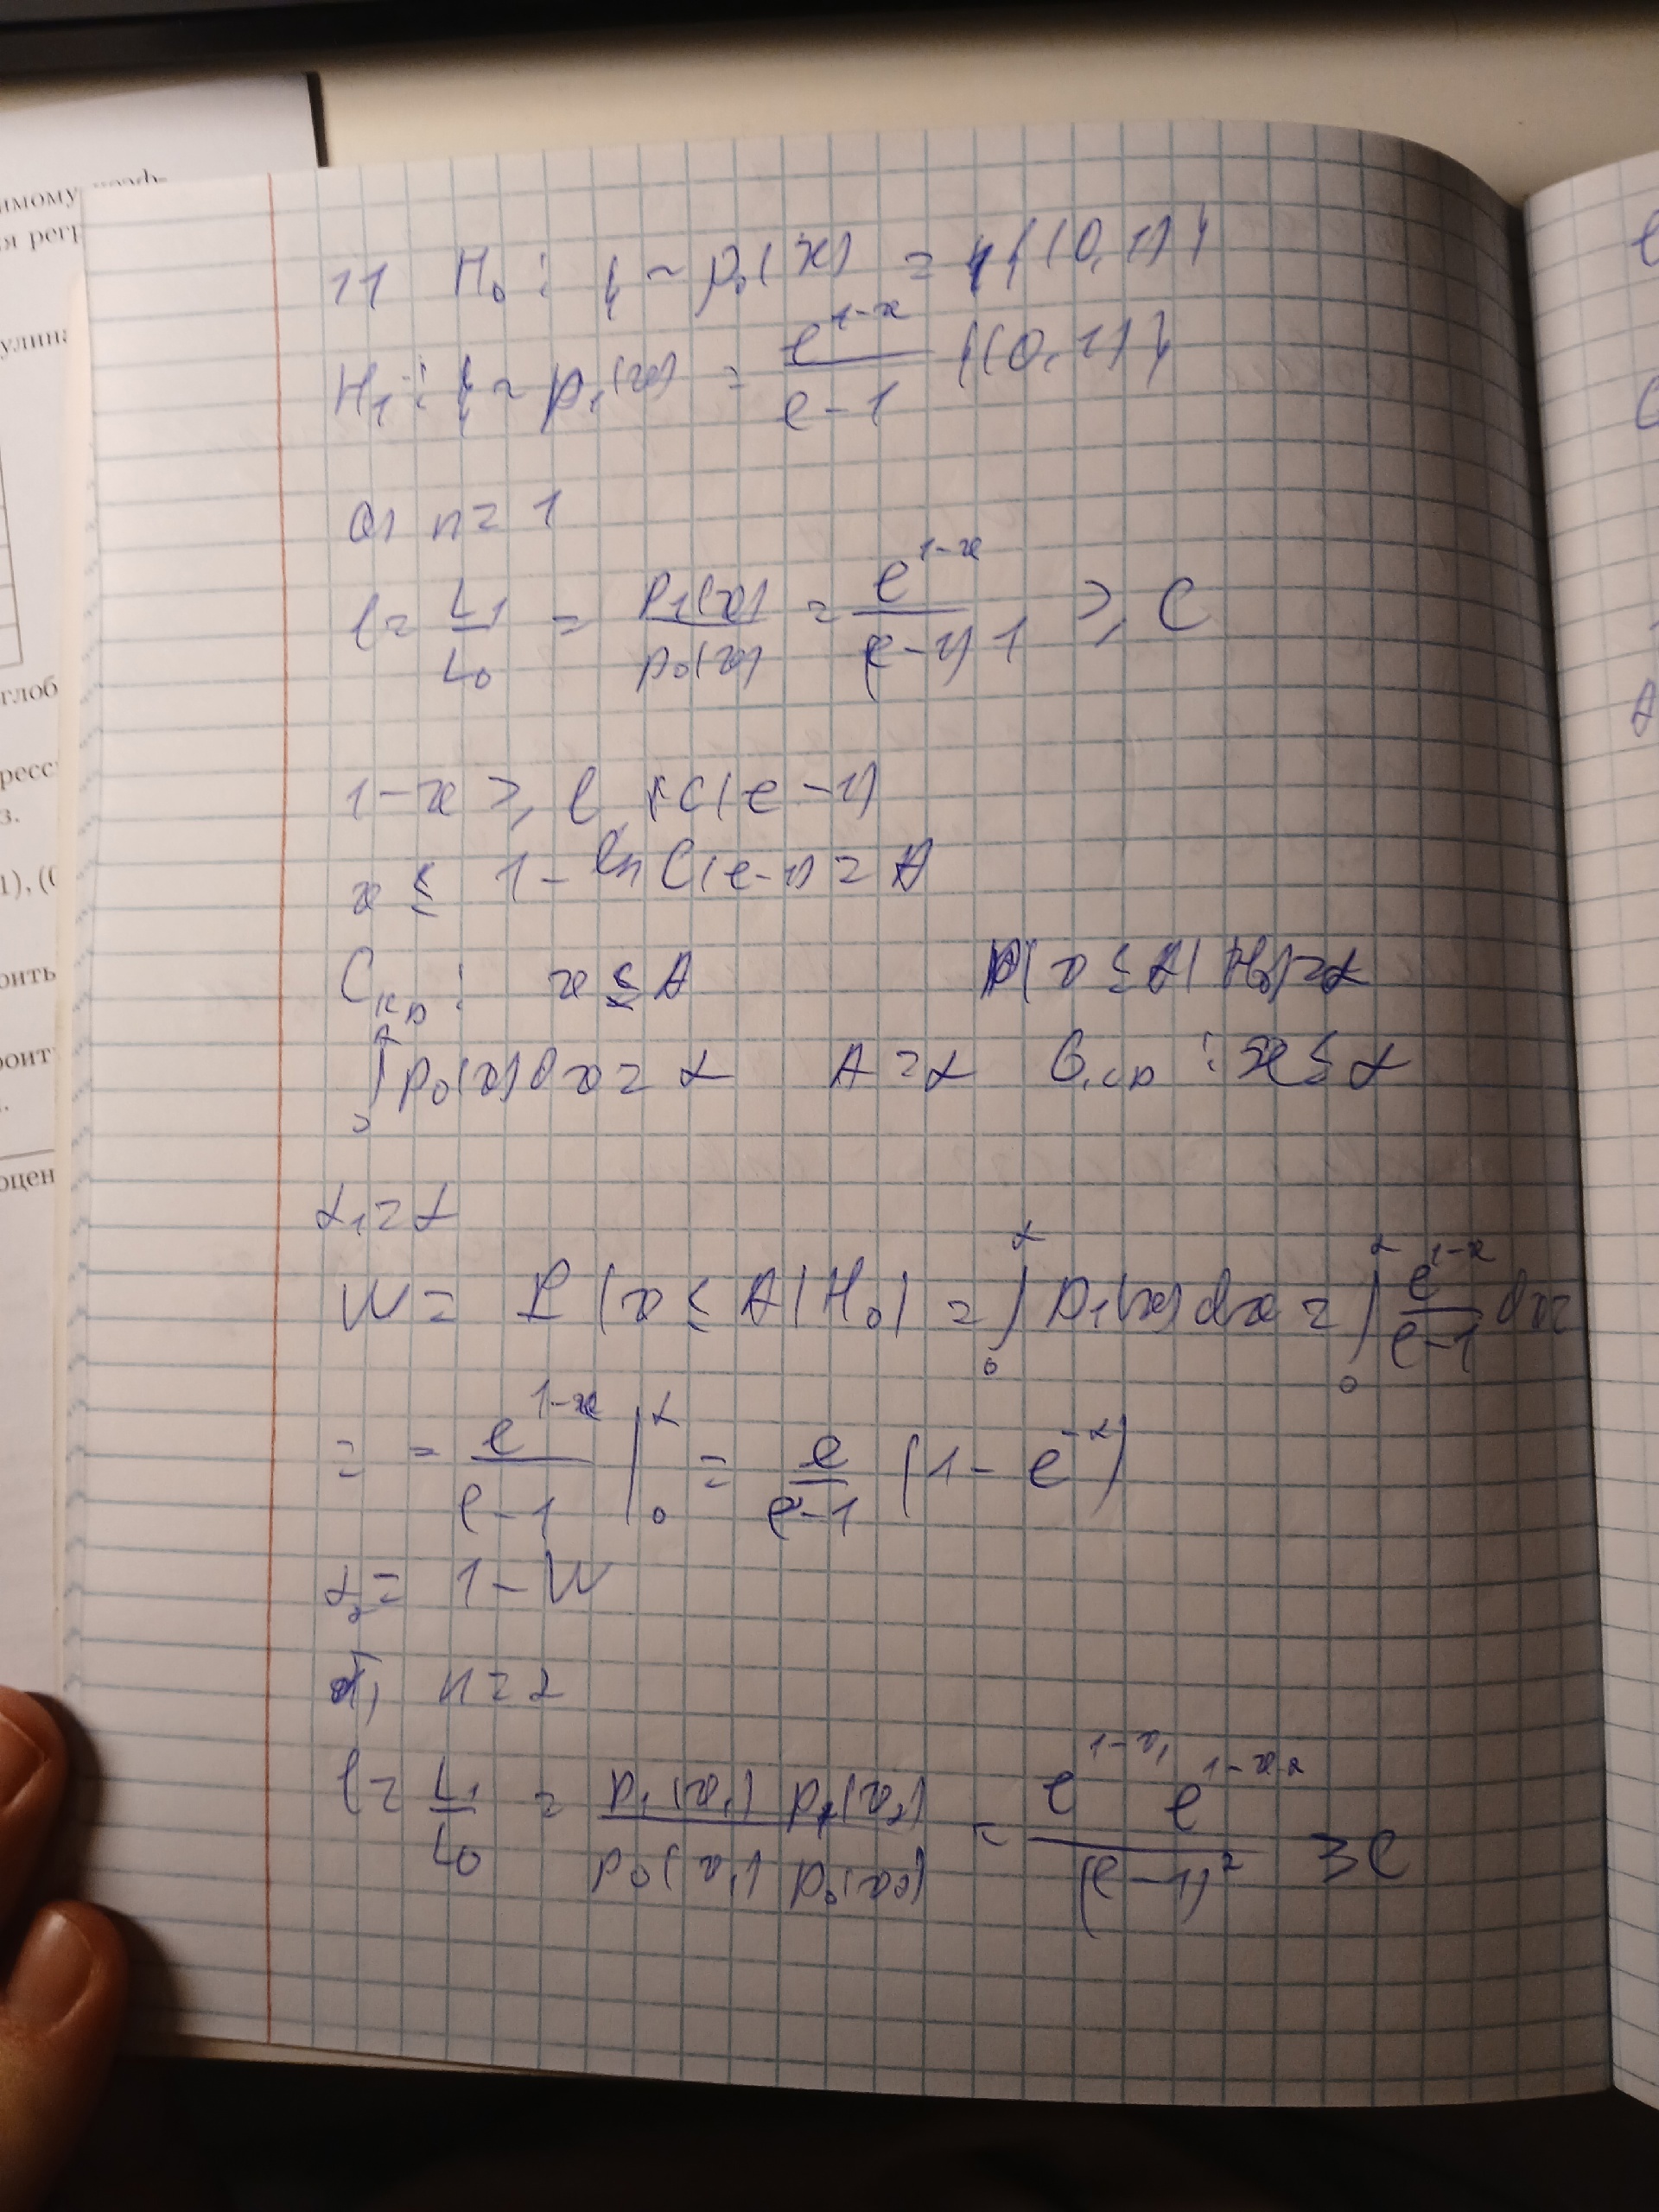 имому коэф-
я регр
улина
глоб
ресс
з.
1), (0
оить
роит
оцен
11 H₀ : ξ ~ p₀(x) = {(0,1)}
H₁ : ξ ~ p₁(x) = e^(1-x)/(e-1) {(0,1)}
а) n = 1
l = L₁/L₀ = p₁(x)/p₀(x) = e^(1-x)/((e-1) 1) ≥ C
1-x ≥ ln C(e-1)
x ≤ 1 - ln C(e-1) = A
Cкр : x ≤ A P(x ≤ A | H₀) = α
∫₀^A p₀(x) dx = α A = α Gкр : x ≤ α
α₁ = α
W = P(x ≤ A | H₀) = ∫₀^α p₁(x) dx = ∫₀^α e^(1-x)/(e-1) dx =
= - e^(1-x)/(e-1) |₀^α = e/(e-1) (1 - e^(-α))
α₂ = 1 - W
б) n = 2
l = L₁/L₀ = p₁(x₁) p₁(x₂)/(p₀(x₁) p₀(x₂)) = e^(1-x₁) e^(1-x₂)/(e-1)² ≥ C